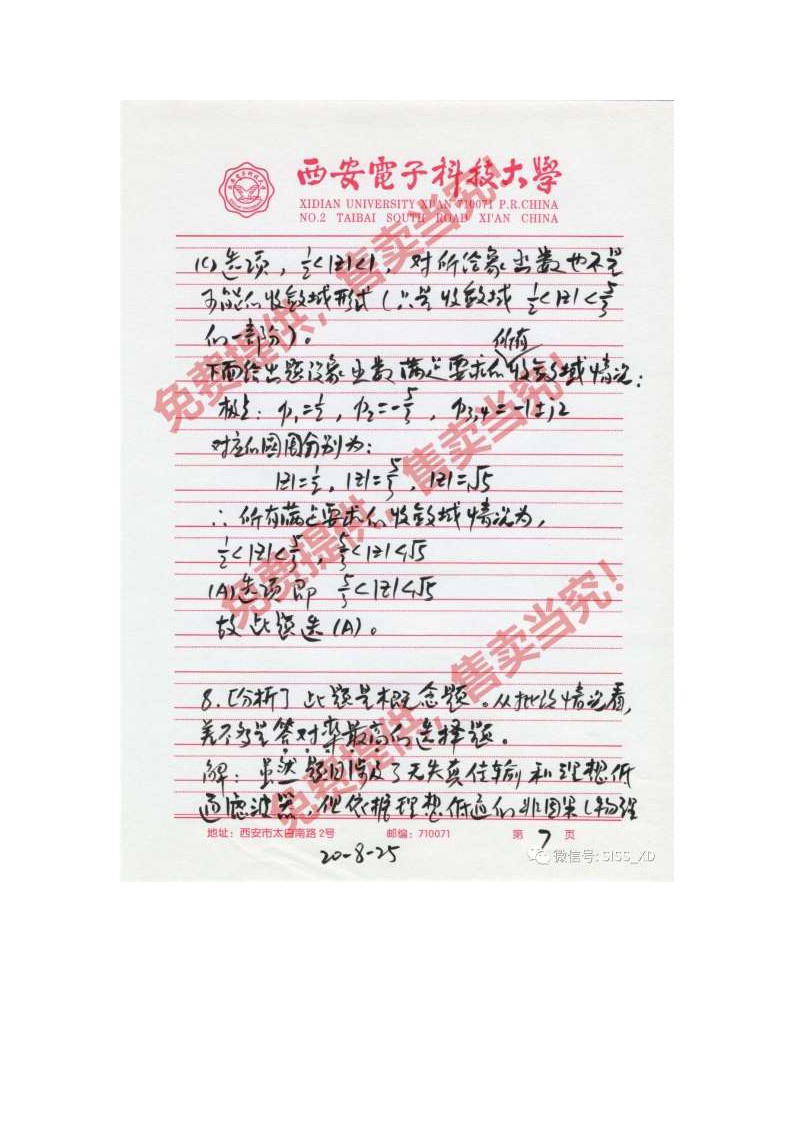 西安電子科技大學
XIDIAN UNIVERSITY XI'AN 710071 P.R.CHINA
NO.2 TAIBAI SOUTH ROAD XI'AN CHINA
(C)选项，1/2<|z|<1，对所给象函数也不是
可能的收敛域形式（只是收敛域 1/2<|z|<5/3
的一部分）。
下面给出题设象函数满足要求的所有收敛域情况：
极点：p₁=1/2，p₂=-5/3，p₃,₄=-1±j2
对应的圆周分别为：
|z|=1/2，|z|=5/3，|z|=√5
∴ 所有满足要求的收敛域情况为，
1/2<|z|<5/3，5/3<|z|<√5
(A)选项即 5/3<|z|<√5
故此题选(A)。
8.［分析］此题是概念题。从批改情况看，
差不多是答对率最高的选择题。
解：虽然题目涉及了无失真传输和理想低
通滤波器，但依据理想低通的非因果（物理
地址：西安市太白南路2号 邮编：710071 第 7 页
20-8-25
微信号: SISS_XD
免费提供，售卖当究！
免费提供，售卖当究！
免费提供，售卖当究！